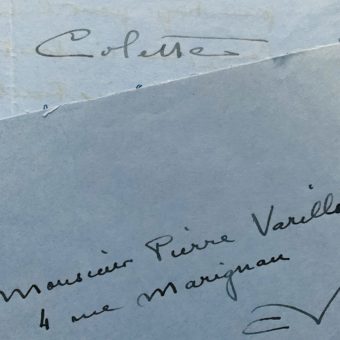 Colette
Monsieur Pierre Varillo
4 rue Marignan